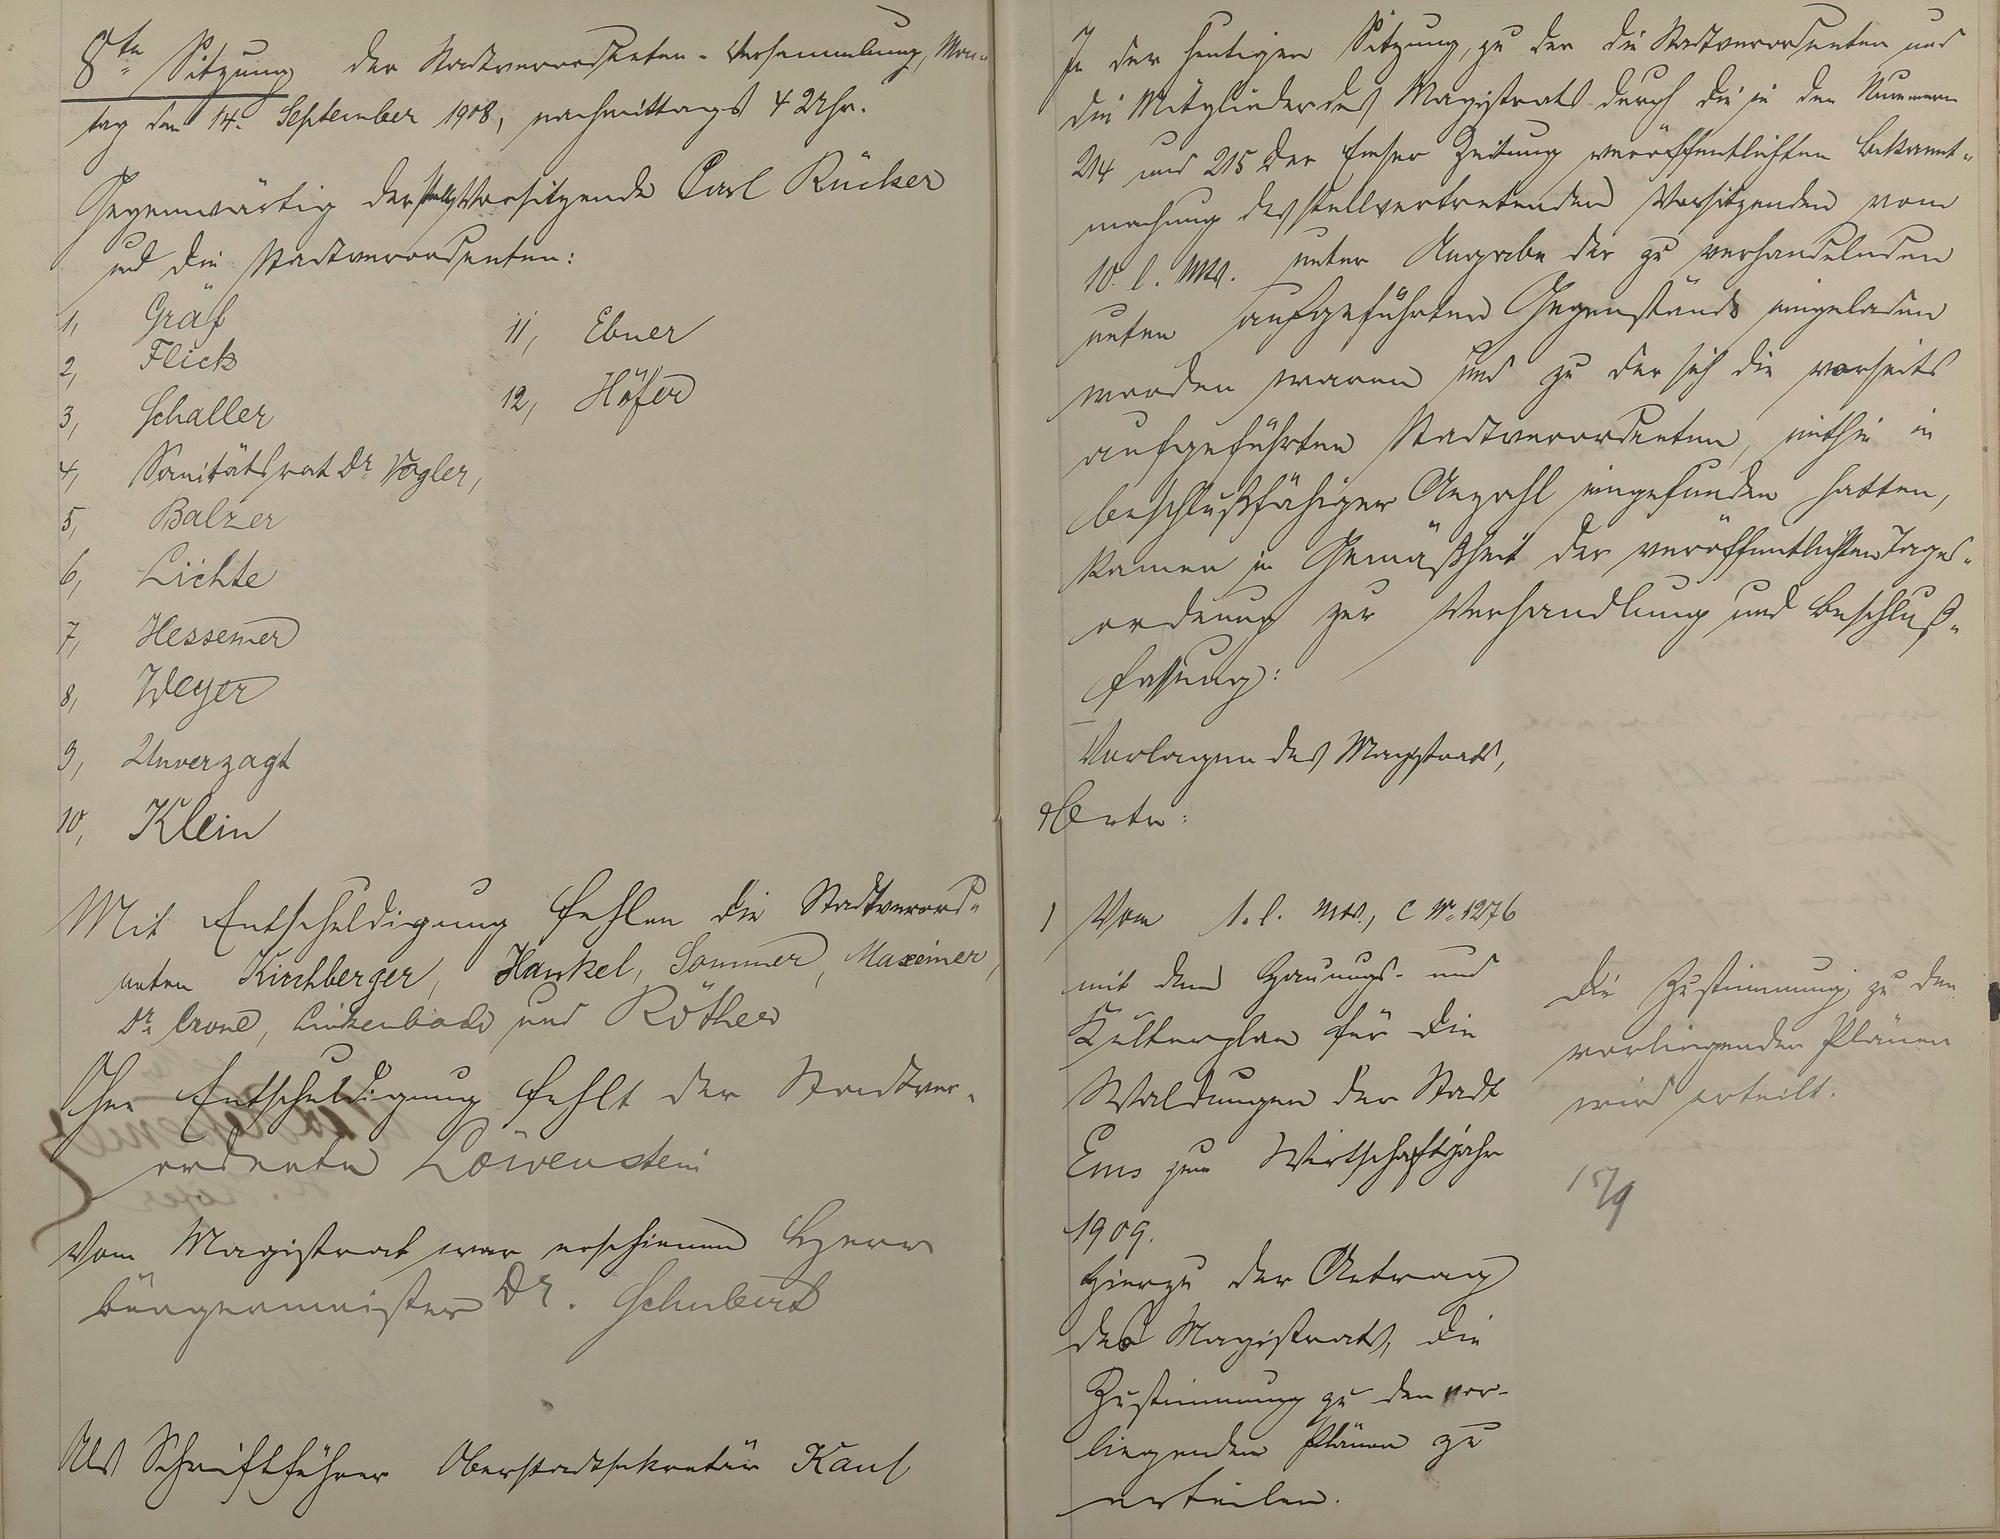 8te Sitzung der Stadtverordneten-Versammlung, Mon-
tag den 14. September 1908, nachmittags 4 Uhr.
Gegenwärtig der stellv. Vorsitzende Carl Rücker
und die Stadtverordneten:
1, Gräf
2, Flick
3, Schaller
4, Sanitätsrat Dr. Vogler,
5, Balzer
6, Lichte
7, Hessemer
8, Weyer
9, Unverzagt
10, Klein
11, Ebner
12, Höfer
Mit Entschuldigung fehlen die Stadtverord-
neten Kirchberger, Hankel, Sommer, Maxeiner,
Dr. Crone, Linkenbach und Röther
Ohne Entschuldigung fehlt der Stadtver-
ordnete Löwenstein
Vom Magistrat war erschienen Herr
Bürgermeister Dr. Schubert
Als Schriftführer Oberstadtsekretär Kaul
In der heutigen Sitzung, zu der die Stadtverordneten und
die Mitglieder des Magistrats durch die in den Nummern
214 und 215 der Emser Zeitung veröffentlichten Bekannt-
machung des stellvertretenden Vorsitzenden vom
10. l. Mts. unter Angabe der zu verhandelnden
unten aufgeführten Gegenstände eingeladen
worden waren und zu der sich die vorseits
aufgeführten Stadtverordneten, mithin in
beschlußfähiger Anzahl eingefunden hatten,
kamen in Gemäßheit der veröffentlichten Tages-
ordnung zur Verhandlung und Beschluß-
fassung:
Vorlagen des Magistrats,
1 Vom 1. l. Mts., C No. 1276
mit dem Hauungs- und
Kulturplan für die
Waldungen der Stadt
Ems zum Wirtschaftsjahr
1909.
Hierzu der Antrag
des Magistrats, die
Zustimmung zu den vor-
liegenden Plänen zu
erteilen.
Die Zustimmung zu den
vorliegenden Plänen
wird erteilt.
15/9